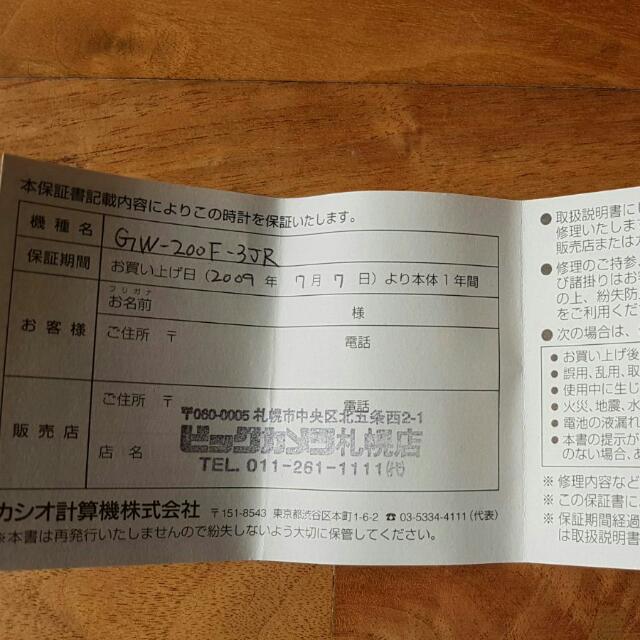 本保証書記載内容によりこの時計を保証いたします。
機種名 GW-200F-3JR
保証期間 お買い上げ日(2009年 7月7日)より本体1年間
お客様
フリガナ
お名前 様
ご住所 〒 電話
販売店
ご住所 〒 電話
〒060-0005 札幌市中央区北五条西2-1
店名 ビックカメラ札幌店
TEL. 011-261-1111㈹
カシオ計算機株式会社 〒151-8543 東京都渋谷区本町1-6-2 ☎03-5334-4111(代表)
※本書は再発行いたしませんので紛失しないよう大切に保管してください。
● 取扱説明書に
修理いたしま
販売店または
● 修理のご持参、
び諸掛りはお
の上、紛失防
をご利用くだ
● 次の場合は、
● お買い上げ後
● 誤用、乱用、取
● 使用中に生じ
● 火災、地震、水
● 電池の液漏れ
● 本書の提示が
のない場合、
※ 修理内容など
※ この保証書に
※ 保証期間経過
は取扱説明書